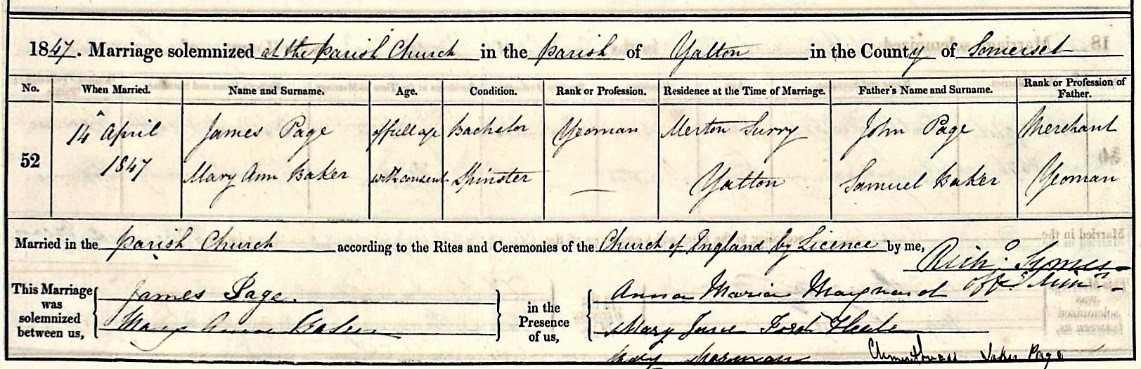 1847. Marriage solemnized at the Parish Church in the Parish of Yatton in the County of Somerset
No. When Married. Name and Surname. Age. Condition. Rank or Profession. Residence at the Time of Marriage. Father's Name and Surname. Rank or Profession of Father.
52
14 April 1847 James Page of full age Bachelor Yeoman Merton Surry John Page Merchant
Mary Ann Baker with consent Spinster — Yatton Samuel Baker Yeoman
Married in the Parish Church according to the Rites and Ceremonies of the Church of England by Licence by me,
Richd. Symes
Offg. Minr.
This Marriage was solemnized between us, James Page
Mary Anne Baker
in the Presence of us, Anna Maria Maynard
Mary Jane
Mary John Page